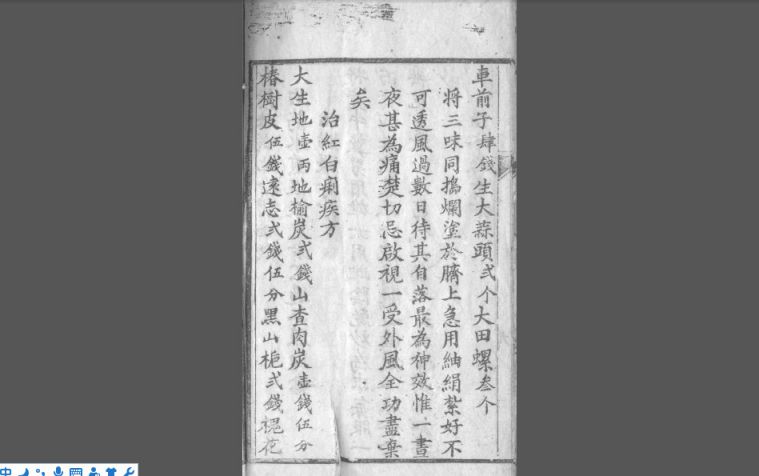 車前子肆錢生大蒜頭弍个大田螺叁个
將三味同搗爛塗於臍上急用紬絹紮好不
可透風過數日待其自落最為神效惟一晝
夜甚為痛楚切忌啟視一受外風全功盡棄
矣
治紅白痢疾方
大生地壺両地榆炭弍錢山查肉炭壺錢伍分
椿樹皮伍錢遠志弍錢伍分黑山梔弍錢槐花
中